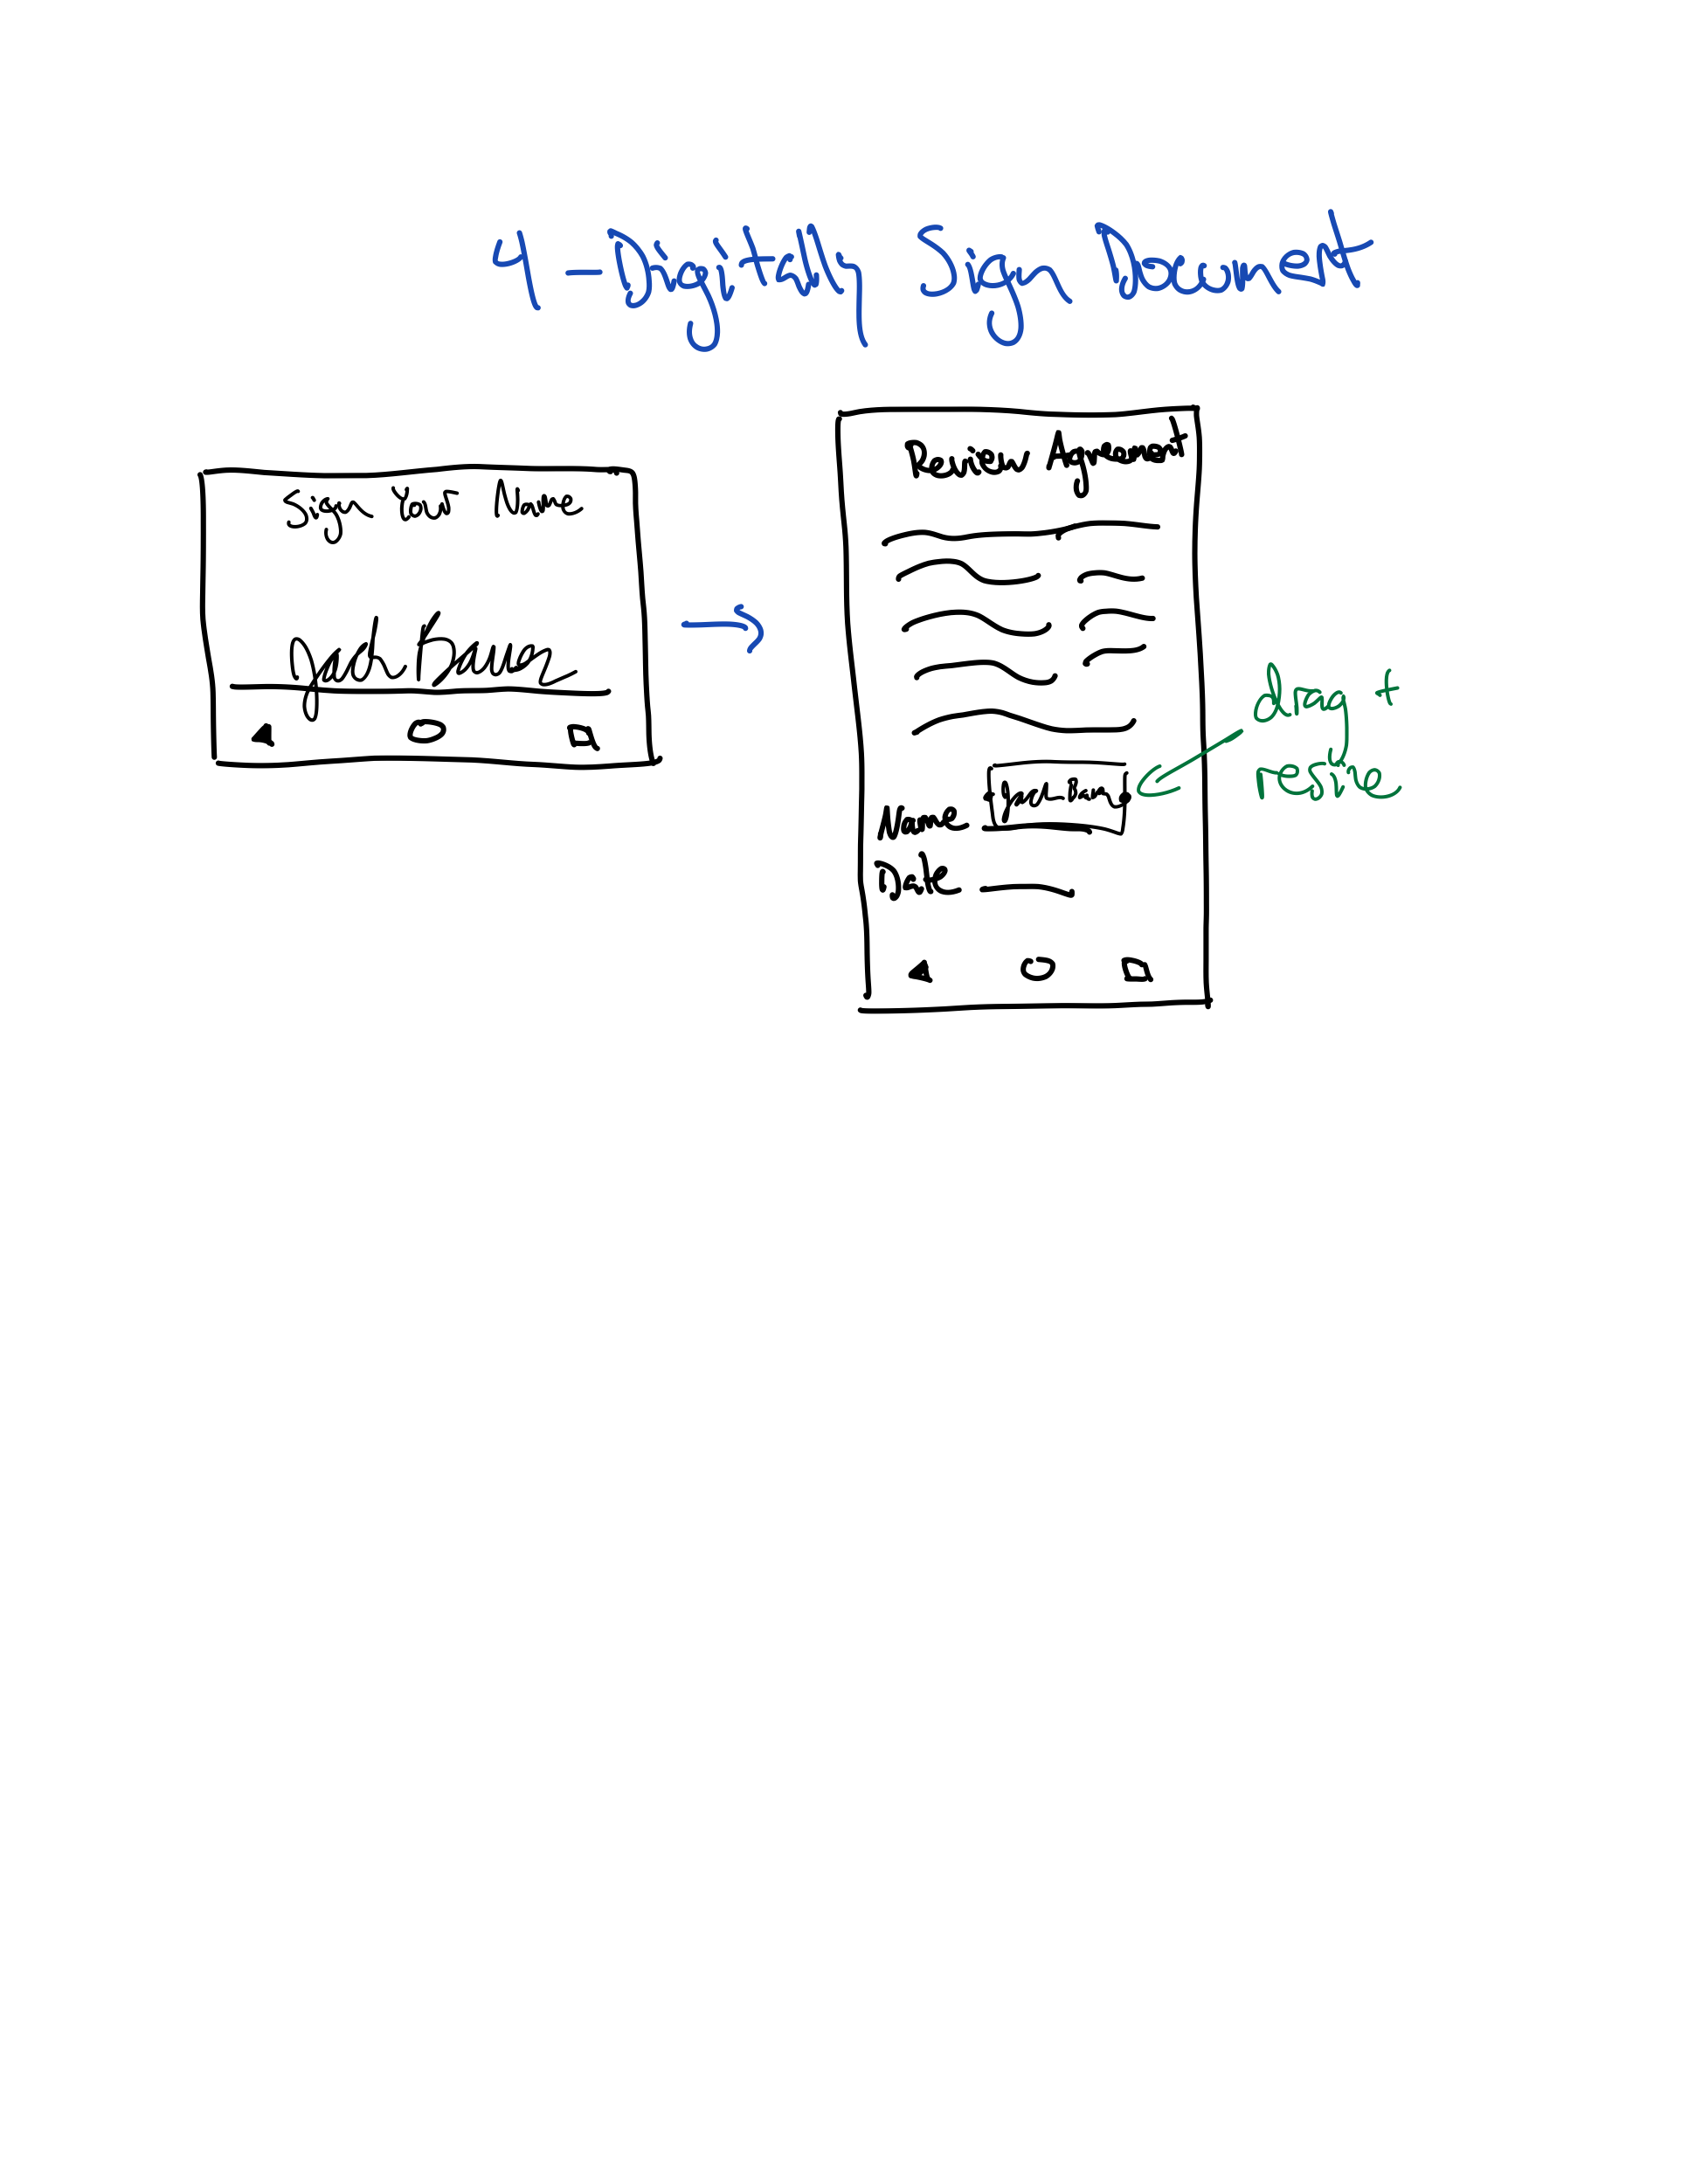 4 - Digitally Sign Document
Sign Your Name
Jack Bauer
Review Agreement
Jack Bauer
Name
Date
drag +
resize